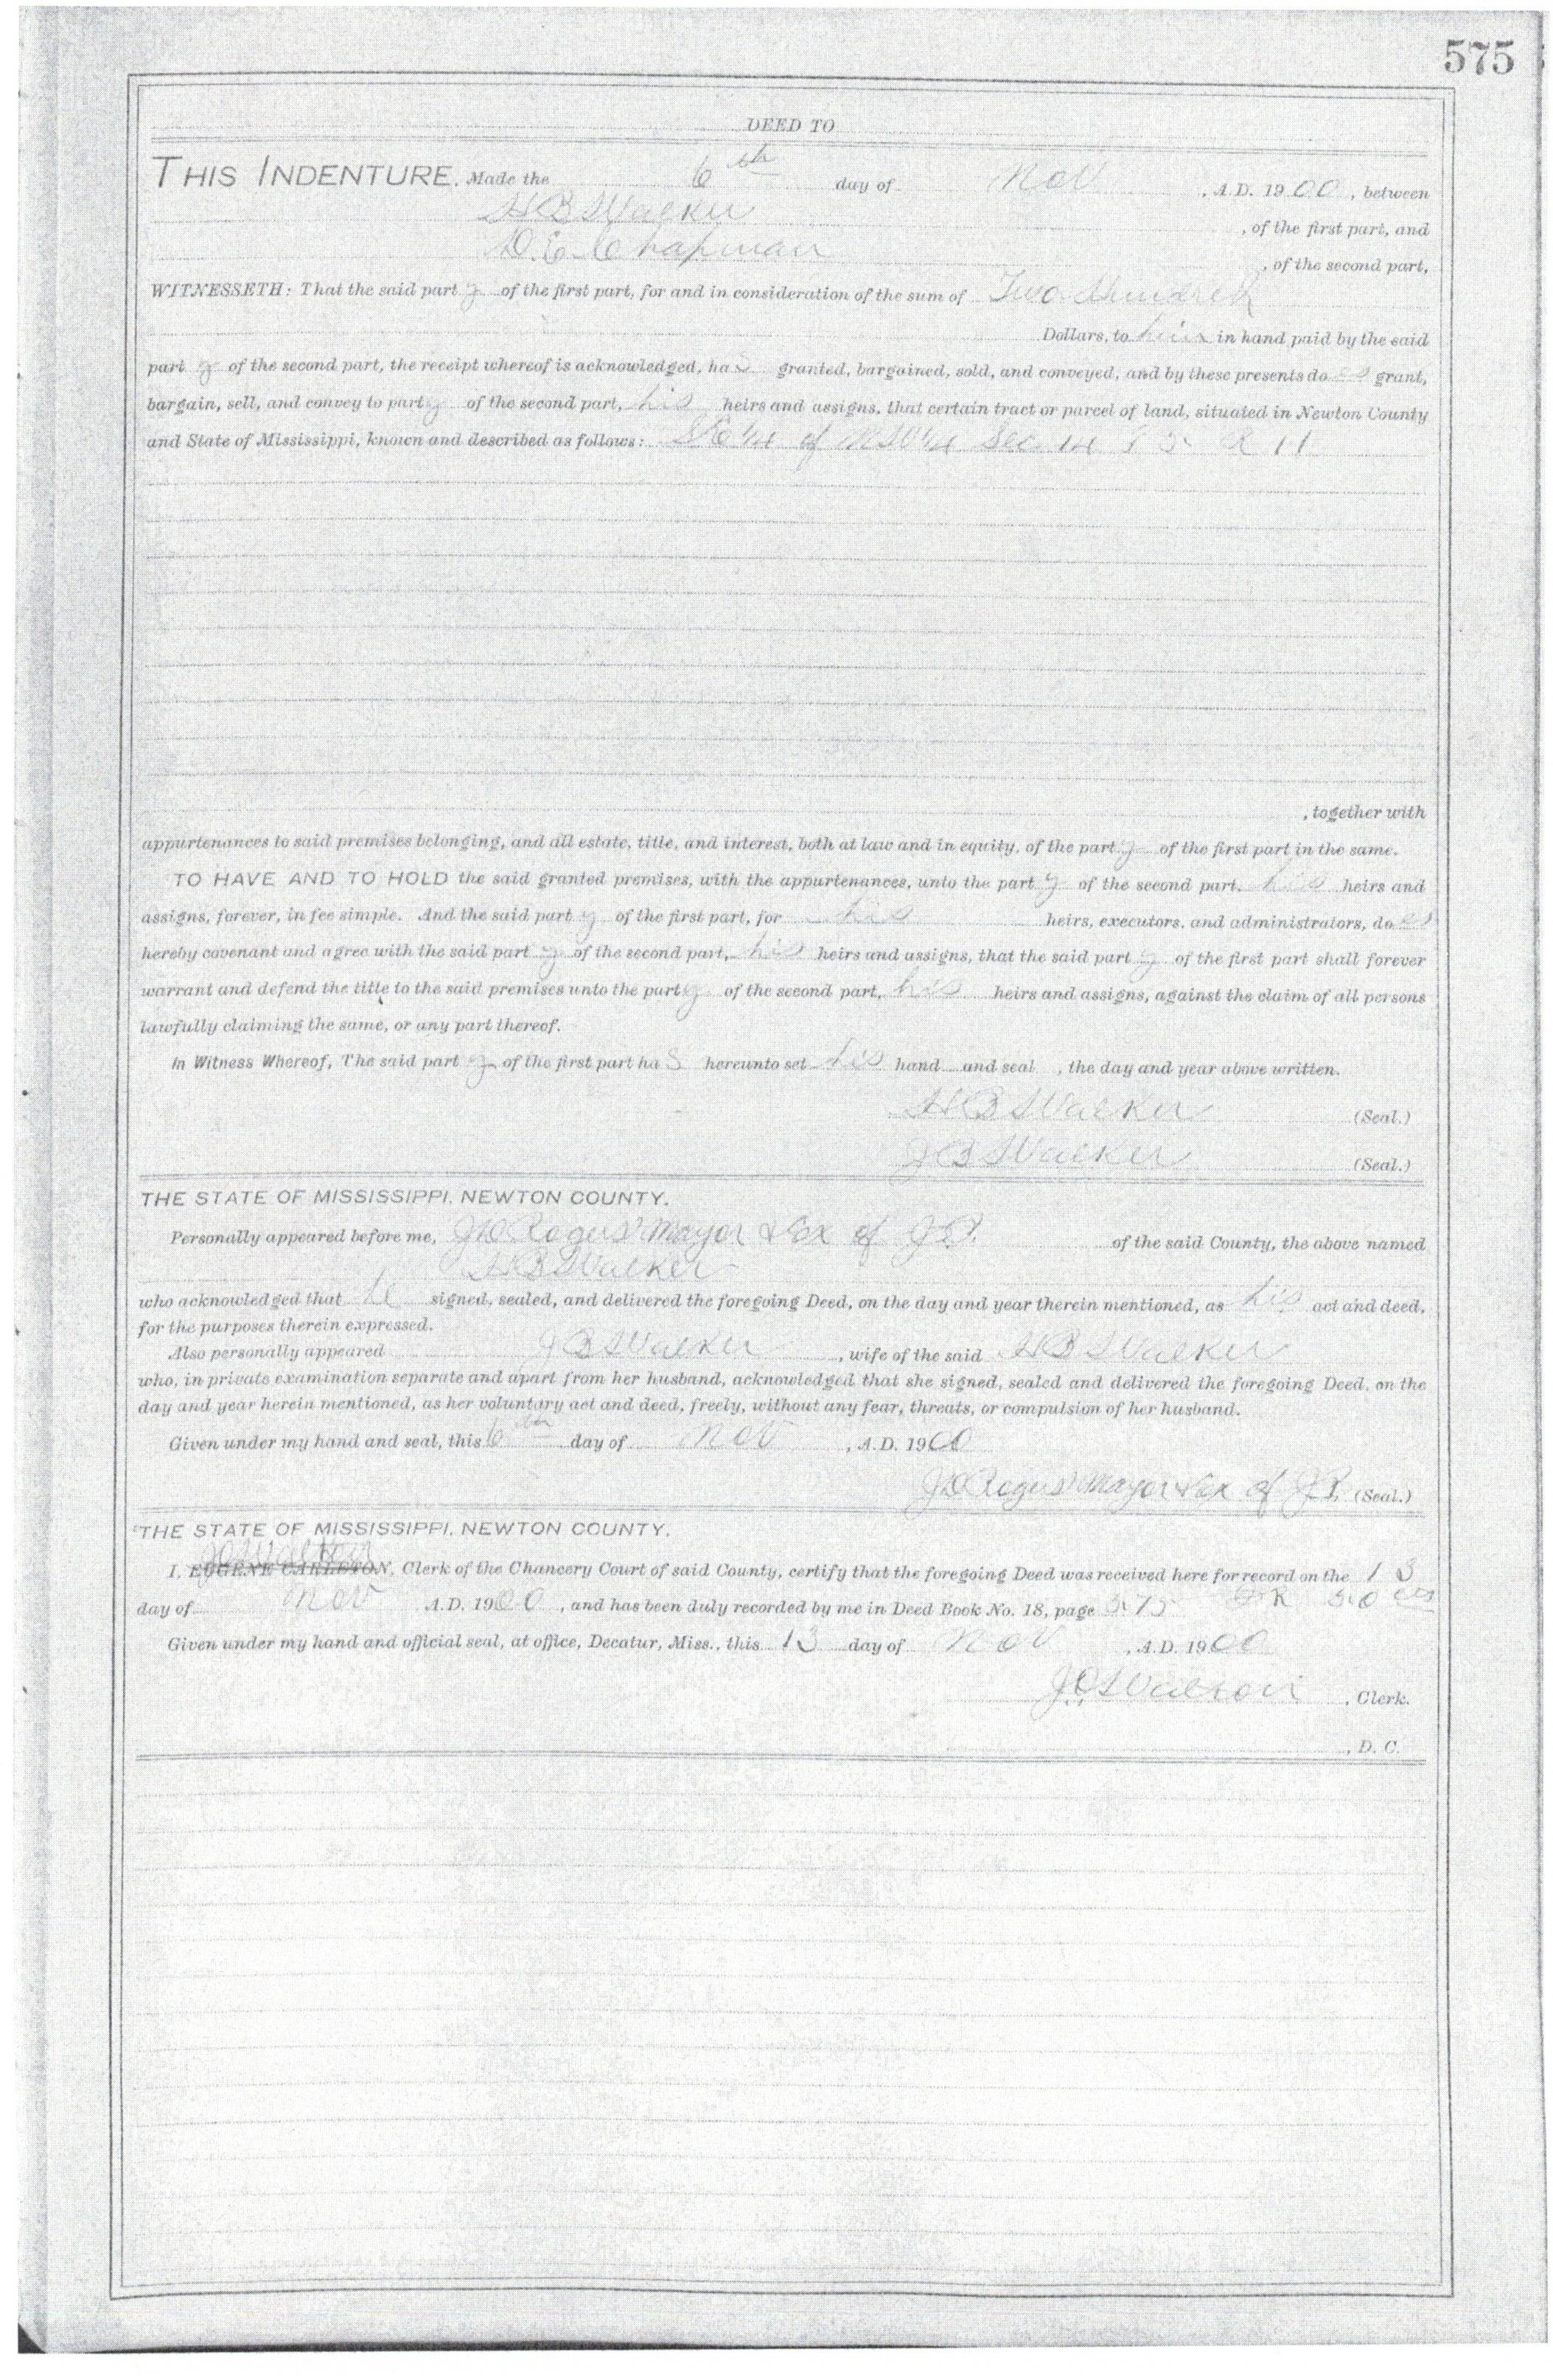 575
DEED TO
THIS INDENTURE, Made the 6th day of Nov , A.D. 1900 , between
H B Walker , of the first part, and
D. E. Chapman , of the second part,
WITNESSETH: That the said party of the first part, for and in consideration of the sum of Two Hundred
Dollars, to him in hand paid by the said
party of the second part, the receipt whereof is acknowledged, has granted, bargained, sold, and conveyed, and by these presents does grant,
bargain, sell, and convey to party of the second part, his heirs and assigns, that certain tract or parcel of land, situated in Newton County
and State of Mississippi, known and described as follows: 1/4 of 1/4 Sec 14 T 5 R 11
, together with
appurtenances to said premises belonging, and all estate, title, and interest, both at law and in equity, of the party of the first part in the same.
TO HAVE AND TO HOLD the said granted premises, with the appurtenances, unto the party of the second part, his heirs and
assigns, forever, in fee simple. And the said party of the first part, for his heirs, executors, and administrators, does
hereby covenant and agree with the said party of the second part, his heirs and assigns, that the said party of the first part shall forever
warrant and defend the title to the said premises unto the party of the second part, his heirs and assigns, against the claim of all persons
lawfully claiming the same, or any part thereof.
In Witness Whereof, The said party of the first part has hereunto set his hand and seal , the day and year above written.
H B Walker (Seal.)
J B Walker (Seal.)
THE STATE OF MISSISSIPPI, NEWTON COUNTY.
Personally appeared before me, J D Rogers Mayor & Ex of J.P. of the said County, the above named
H B Walker
who acknowledged that he signed, sealed, and delivered the foregoing Deed, on the day and year therein mentioned, as his act and deed,
for the purposes therein expressed.
Also personally appeared J B Walker , wife of the said H B Walker
who, in private examination separate and apart from her husband, acknowledged that she signed, sealed and delivered the foregoing Deed, on the
day and year herein mentioned, as her voluntary act and deed, freely, without any fear, threats, or compulsion of her husband.
Given under my hand and seal, this 6th day of Nov , A.D. 1900
J D Rogers Mayor & Ex of J.P. (Seal.)
THE STATE OF MISSISSIPPI, NEWTON COUNTY.
I, EUGENE CARLETON, Clerk of the Chancery Court of said County, certify that the foregoing Deed was received here for record on the 13
day of Nov A.D. 1900 , and has been duly recorded by me in Deed Book No. 18, page 575
Given under my hand and official seal, at office, Decatur, Miss., this 13 day of Nov , A.D. 1900
, Clerk.
, D. C.